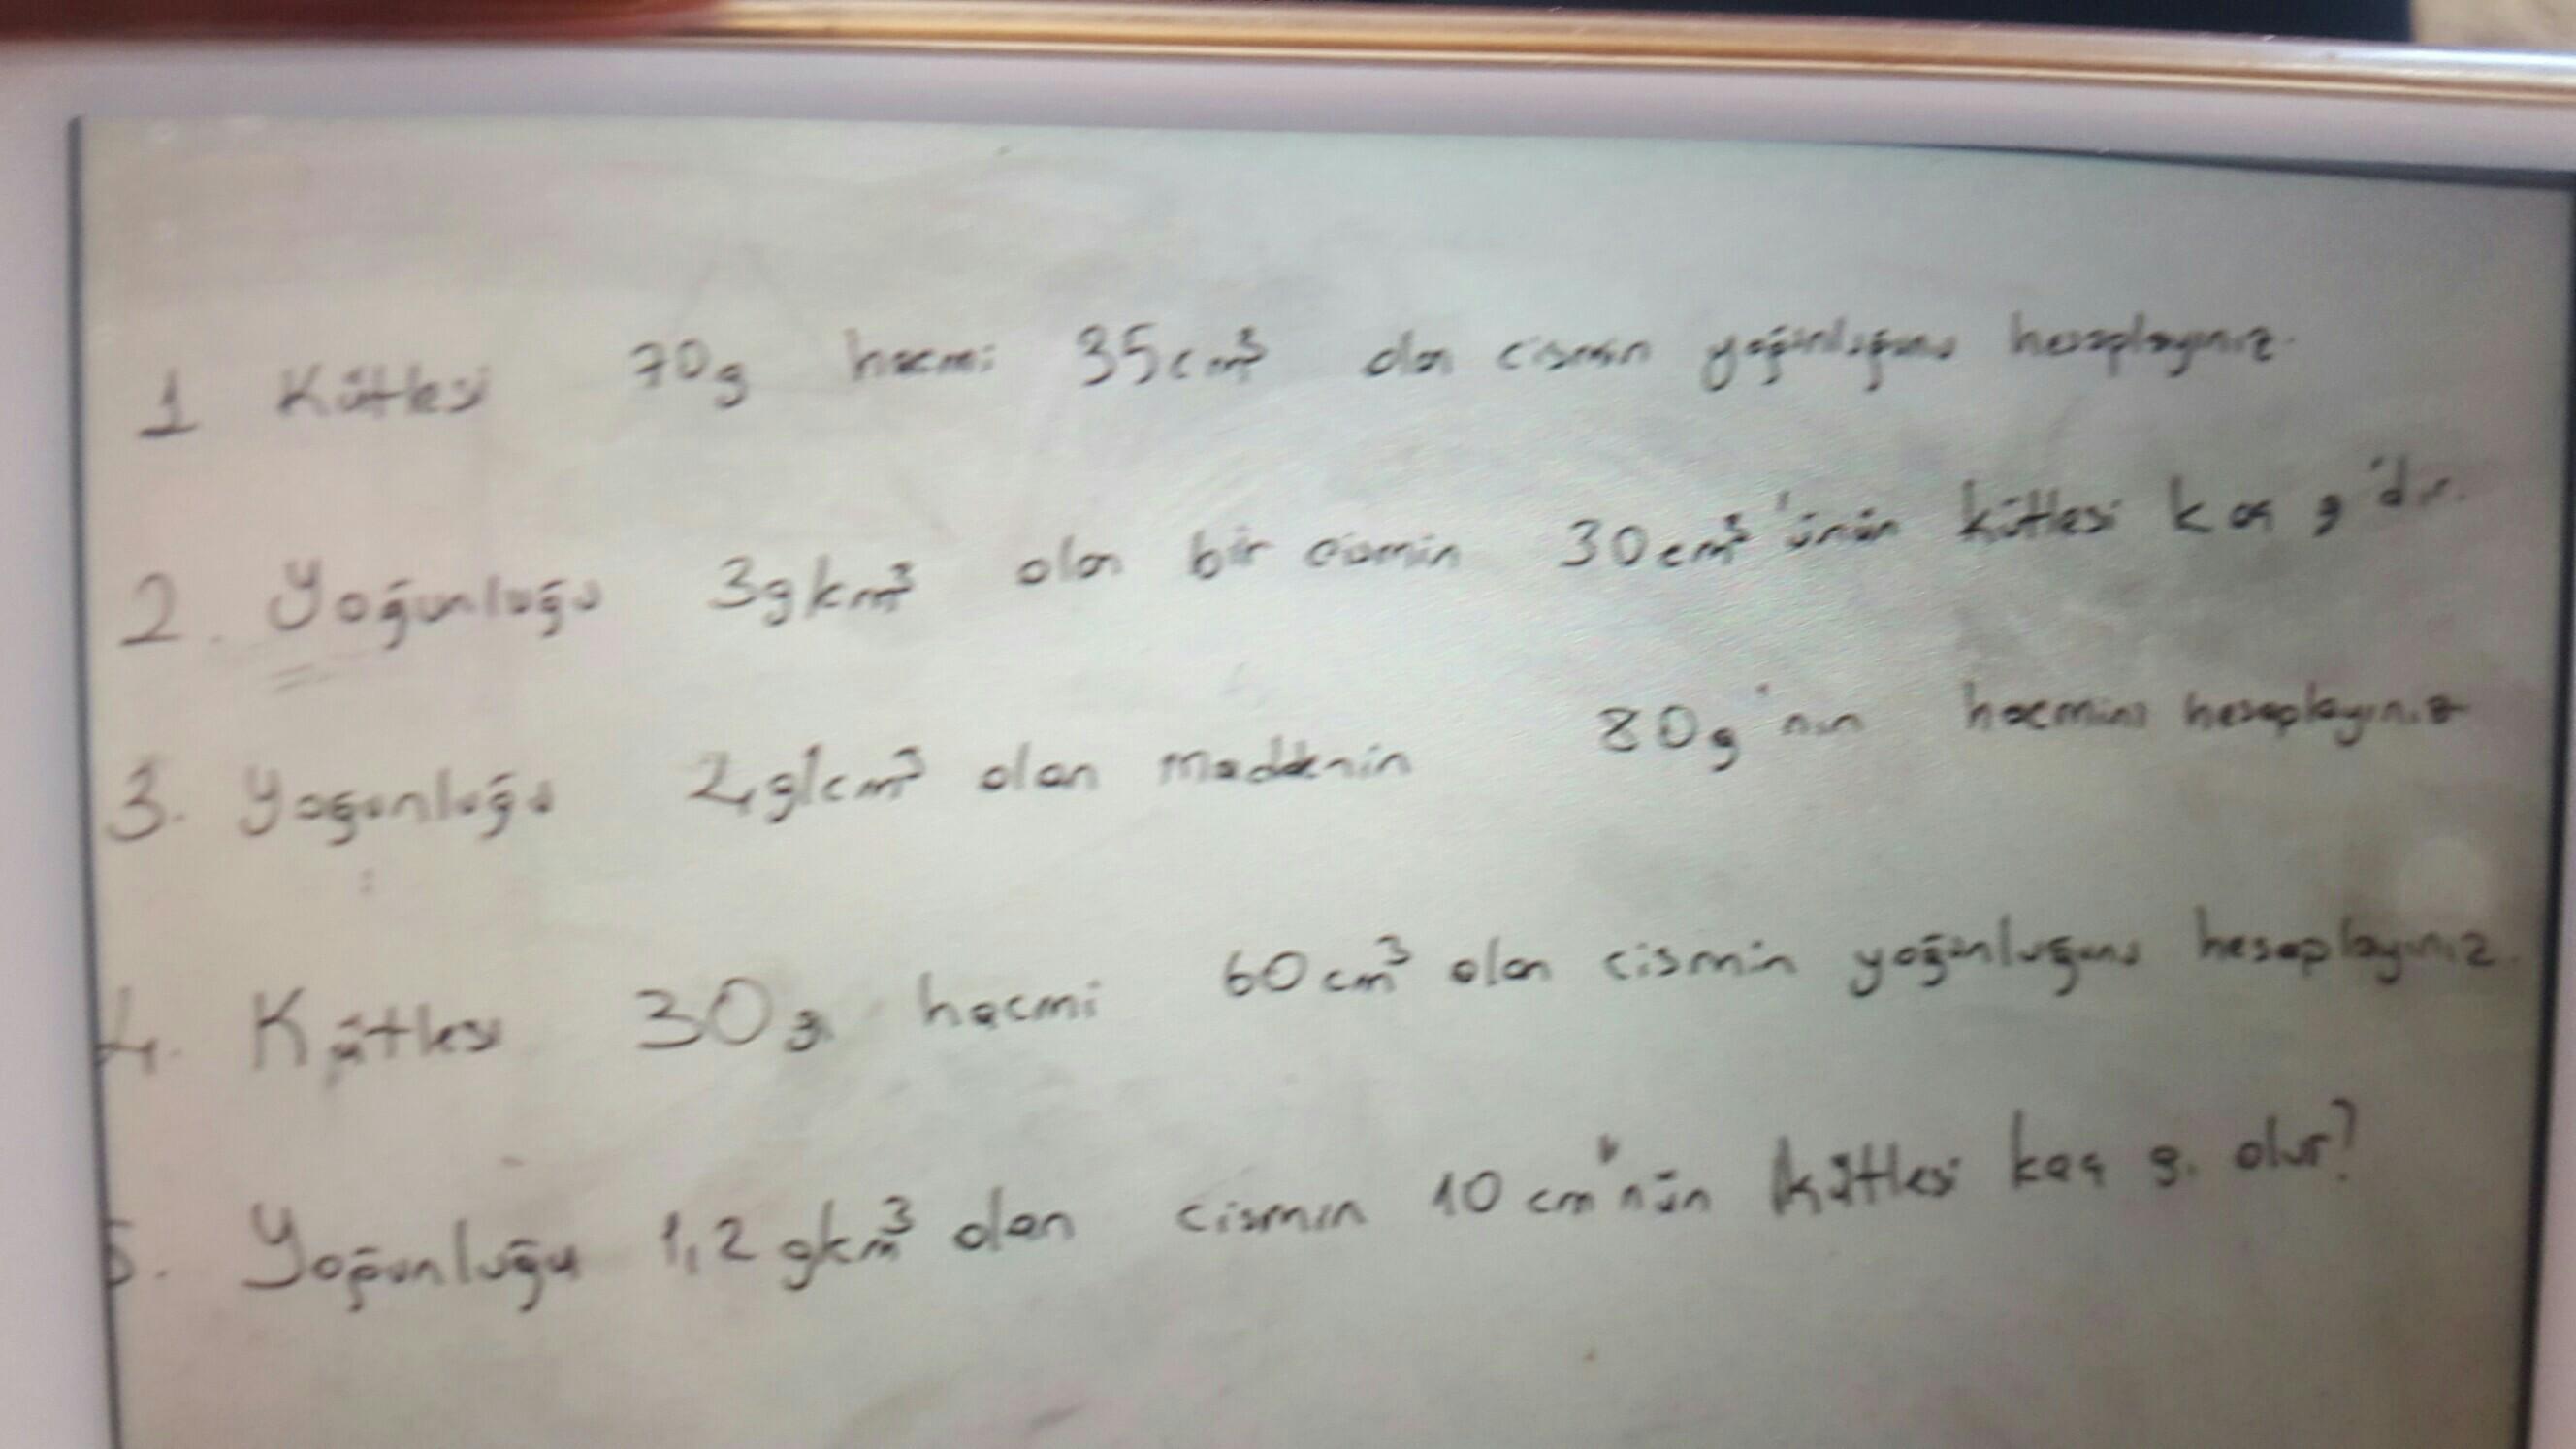 1 Kütlesi 70g hacmi 35cm³ olan cismin yoğunluğunu hesaplayınız.
2. Yoğunluğu 3g/cm³ olan bir cismin 30cm³'ünün kütlesi kaç g'dır.
3. Yoğunluğu 2g/cm³ olan maddenin 80g'nın hacmini hesaplayınız
4. Kütlesi 30g hacmi 60cm³ olan cismin yoğunluğunu hesaplayınız.
5. Yoğunluğu 1,2 g/cm³ olan cismin 10 cm'nün kütlesi kaç g. olur?